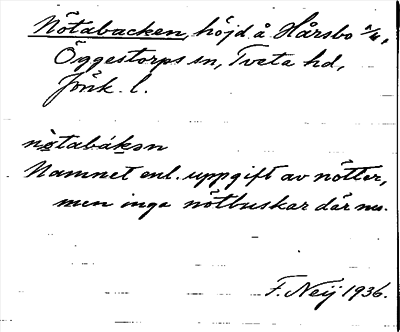 Nötabacken, höjd å Hårsbo ägor,
Öggestorps sn, Tveta hd,
Jönk. l.
nötabákən
Namnet enl. uppgift av nötter,
men inga nötbuskar där nu.
F. Neij 1936.